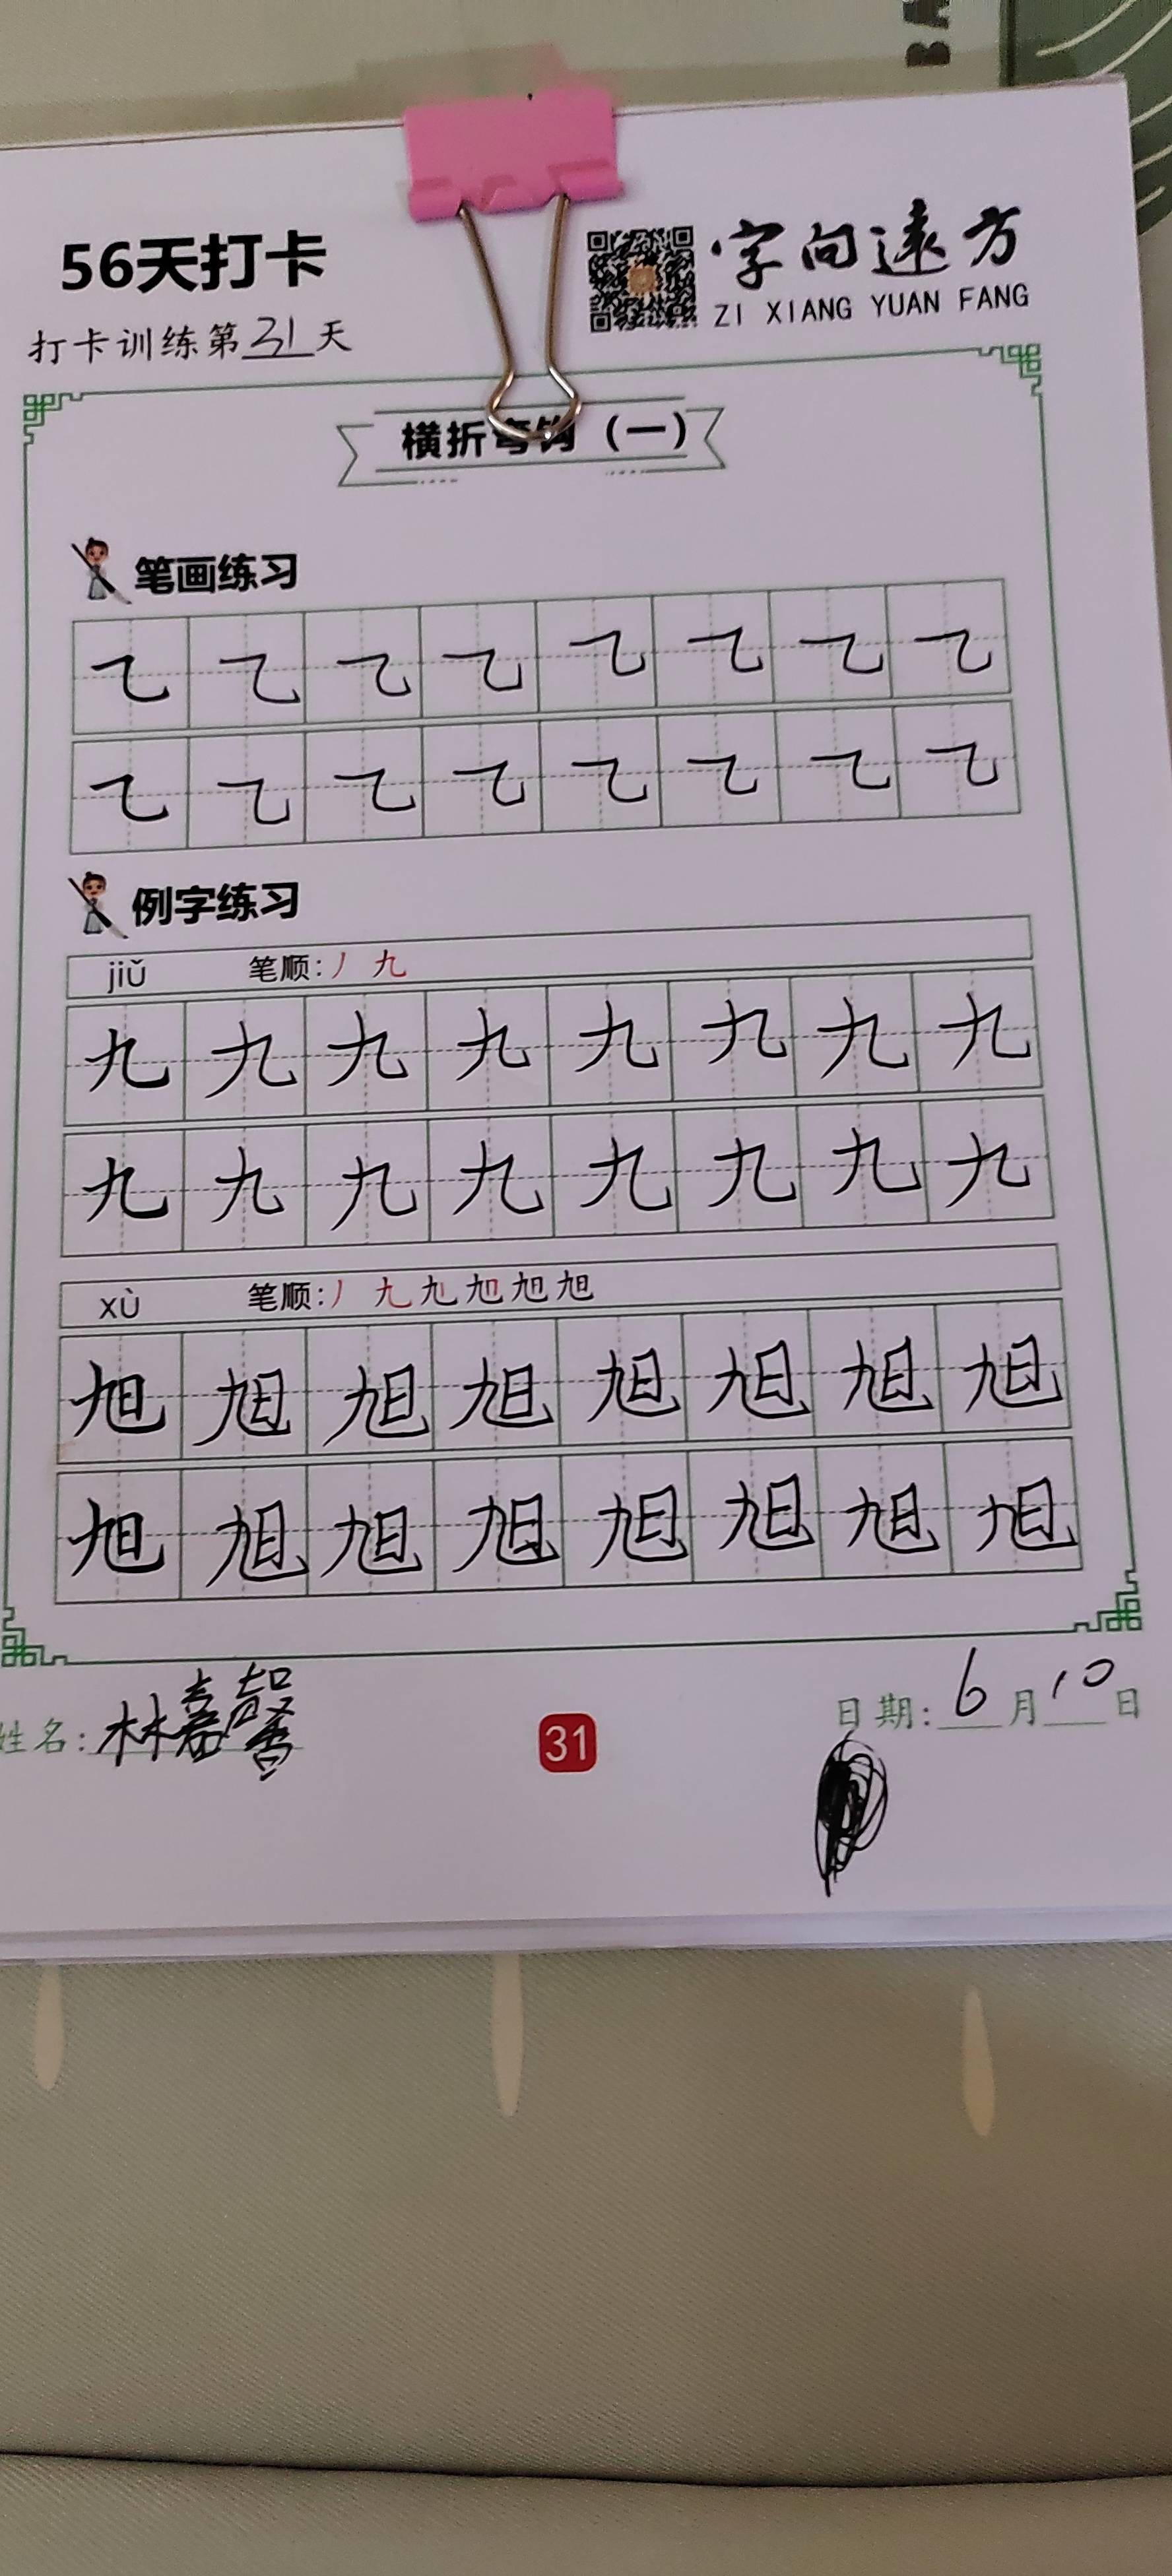 BA
56天打卡
字向遠方
ZI XIANG YUAN FANG
打卡训练第31天
横折弯钩（一）
笔画练习
㇈ ㇈ ㇈ ㇈ ㇈ ㇈ ㇈ ㇈
㇈ ㇈ ㇈ ㇈ ㇈ ㇈ ㇈ ㇈
例字练习
jiǔ 笔顺：丿 九
九 九 九 九 九 九 九 九
九 九 九 九 九 九 九 九
xù 笔顺：丿 九
旭 旭 旭 旭 旭 旭 旭 旭
旭 旭 旭 旭 旭 旭 旭 旭
姓名：林嘉馨 31 日期：6月10日